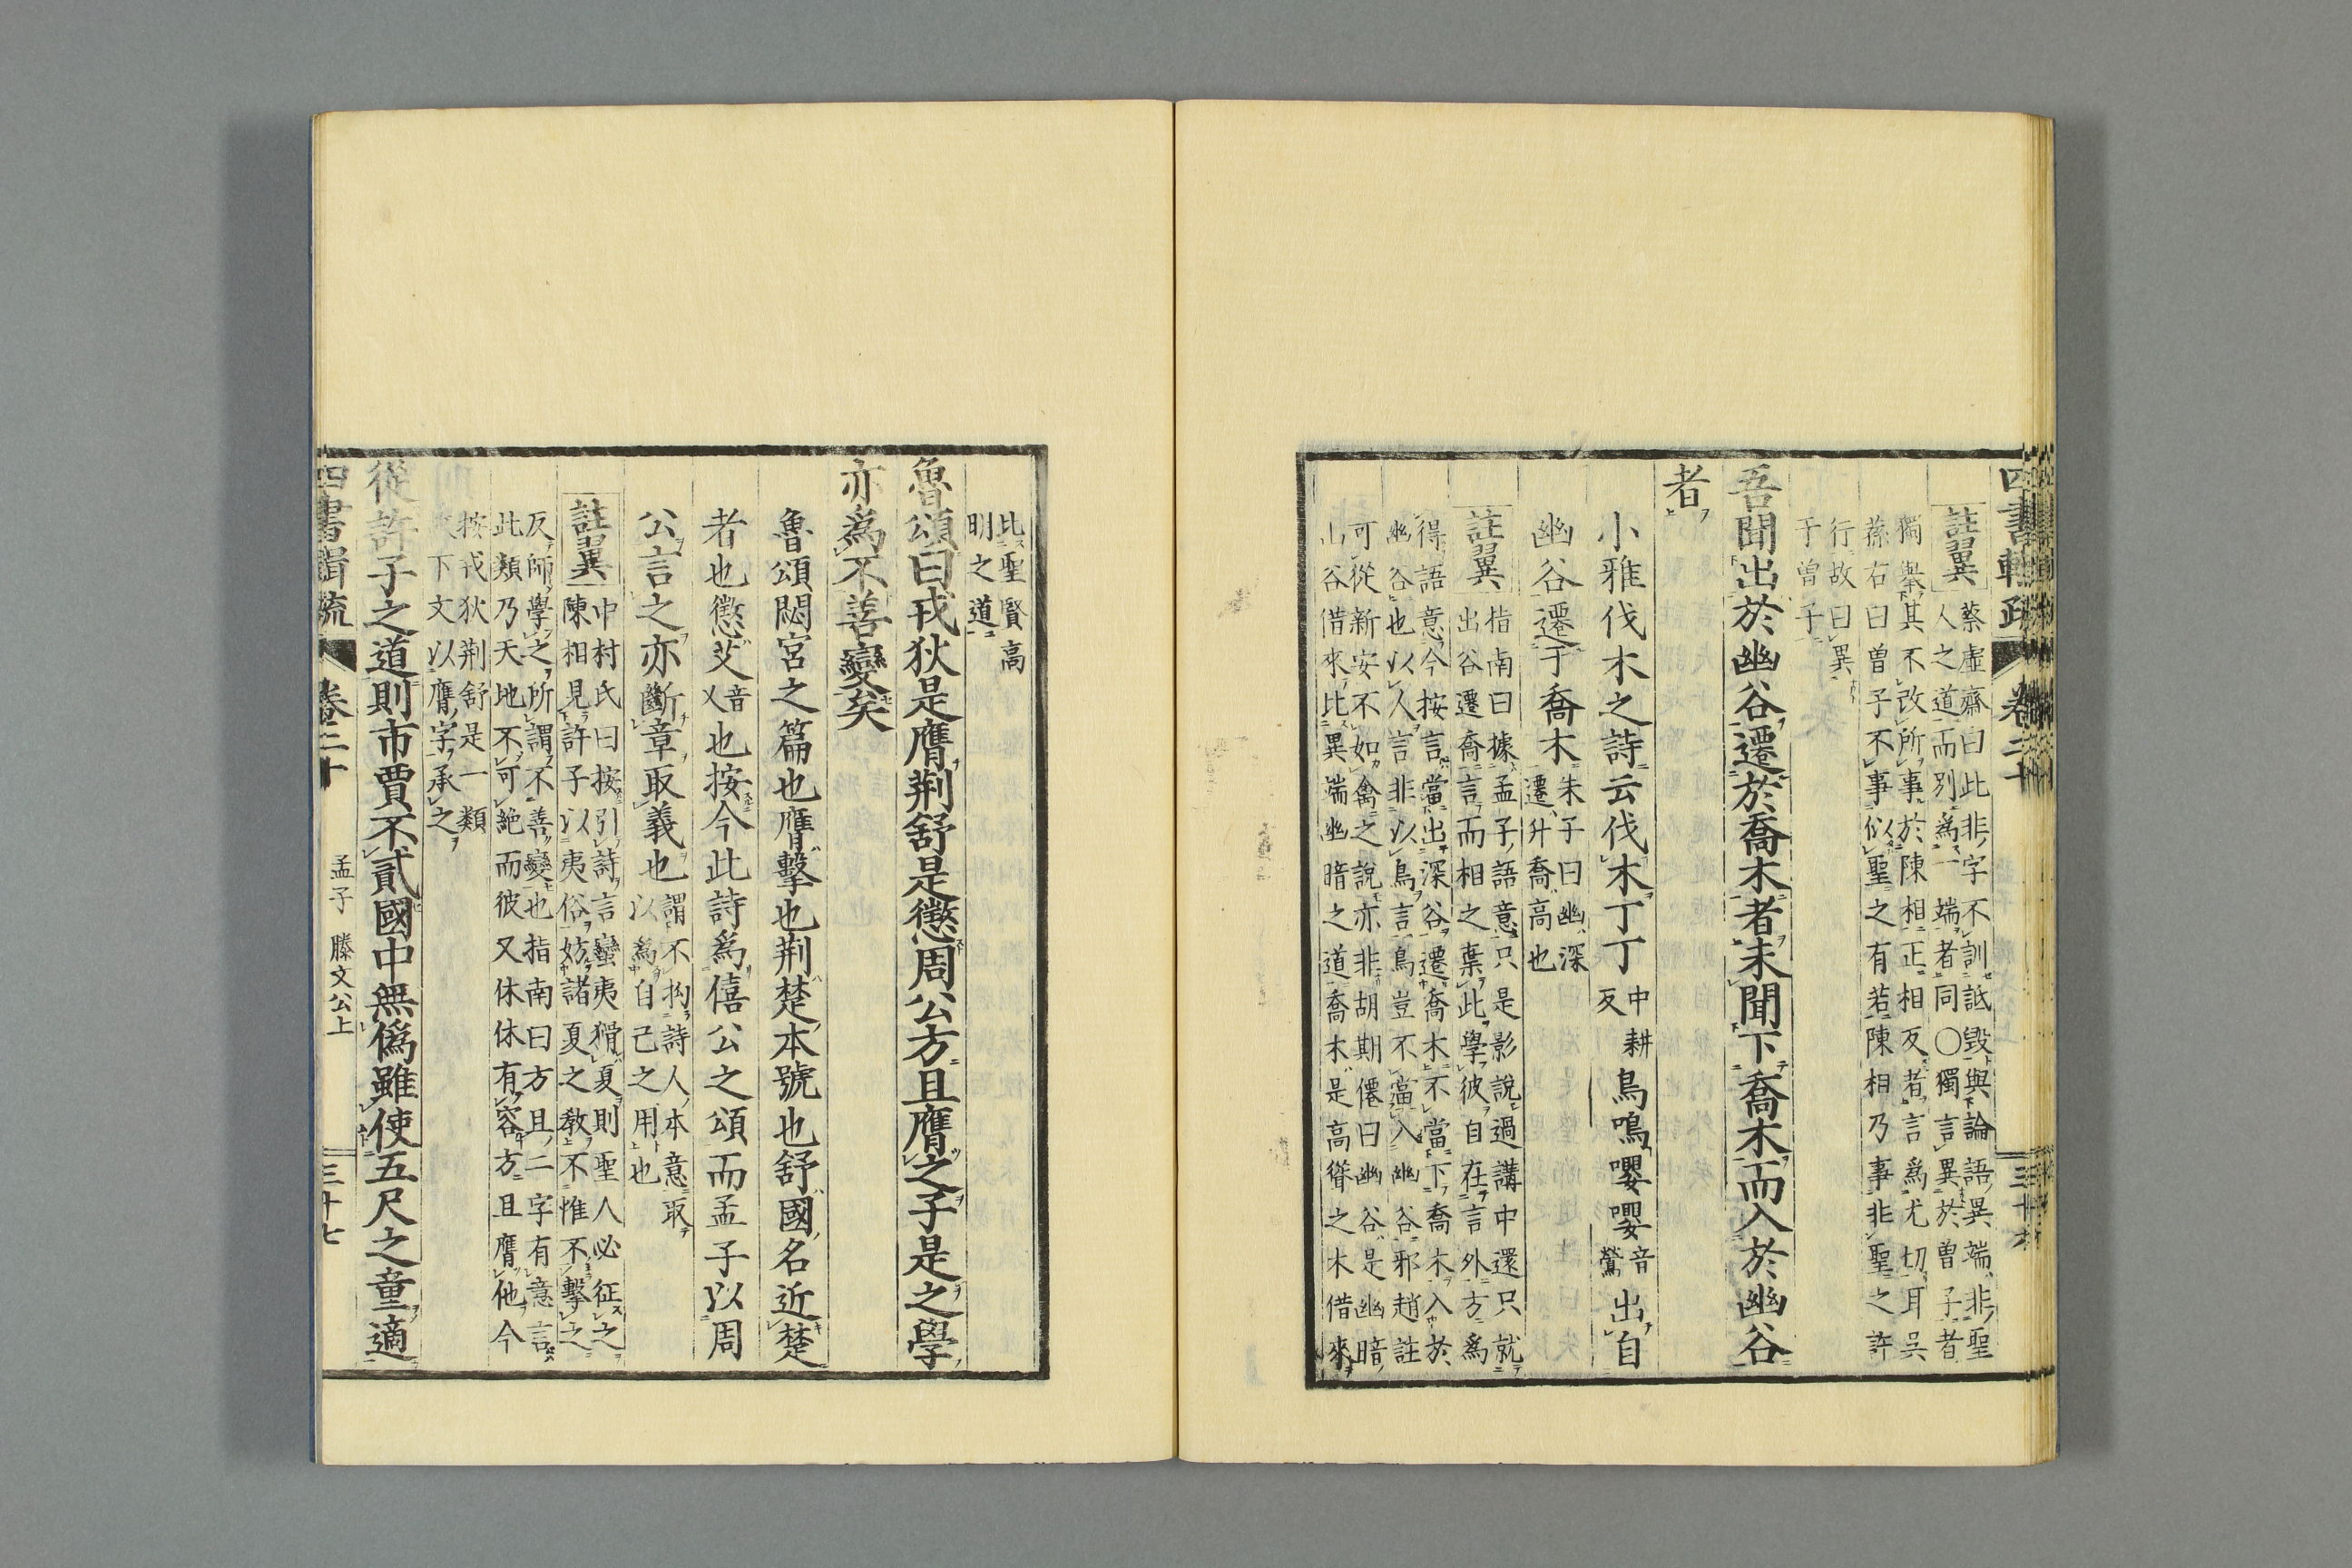 四書輯疏
卷二十
三十六
註翼
蔡虛齋曰此非字不訓詆毀與論語異端非聖
人之道而別爲一端者同〇獨言異於曾子者
獨舉其不改所事於陳相正相反者言爲尤切耳吳
蓀右曰曾子不事似聖之有若陳相乃事非聖之許
行故曰異
于曾子
吾聞出於幽谷遷於喬木者未聞下喬木而入於幽谷
者
小雅伐木之詩云伐木丁丁
中耕
反
鳥鳴嚶嚶
音
鶯
出自
幽谷遷于喬木
朱子曰幽深
遷升喬高也
註翼
指南曰據孟子語意只是影說過講中還只就
出谷遷喬言而相之棄此學彼自在言外方爲
得語意今按言當出深谷遷喬木不當下喬木入於
幽谷也以人言非以鳥言鳥豈不當入幽谷邪趙註
可從新安不如禽之說亦非胡期僊曰幽谷是幽暗
山谷借來比異端幽暗之道喬木是高聳之木借來
比聖賢高
明之道
魯頌曰戎狄是膺荆舒是懲周公方且膺之子是之學
亦爲不善變矣
魯頌閟宮之篇也膺擊也荆楚本號也舒國名近楚
者也懲艾
音
乂
也按今此詩爲僖公之頌而孟子以周
公言之亦斷章取義也
謂不拘詩人本意取
以爲自己之用也
註翼
中村氏曰按引詩言蠻夷猾夏則聖人必征之
陳相見許子以夷俗妨諸夏之教不惟不擊之
反師學之所謂不善變也指南曰方且二字有意言
此類乃天地不可絶而彼又休休有容方且膺他今
按戎狄荆舒是一類
下文以膺字承之
從許子之道則市賈不貳國中無僞雖使五尺之童適
四書輯疏
卷二十
孟子 滕文公上
三十七